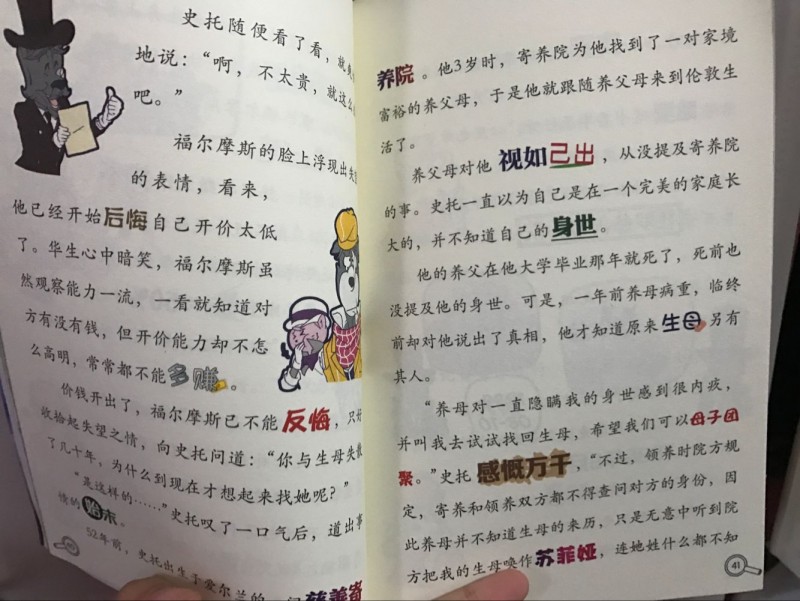 史托随便看了看，就
地说：“啊，不太贵，就这么
吧。”
福尔摩斯的脸上浮现出失
的表情，看来，
他已经开始后悔自己开价太低
了。华生心中暗笑，福尔摩斯虽
然观察能力一流，一看就知道对
方有没有钱，但开价能力却不怎
么高明，常常都不能多赚。
价钱开出了，福尔摩斯已不能反悔，只好
收拾起失望之情，向史托问道：“你与生母失散
了几十年，为什么到现在才想起来找她呢？”
“是这样的……”史托叹了一口气后，道出事
情的始末。
52年前，史托出生于爱尔兰的一间慈善寄
养院。他3岁时，寄养院为他找到了一对家境
富裕的养父母，于是他就跟随养父母来到伦敦生
活了。
养父母对他视如己出，从没提及寄养院
的事。史托一直以为自己是在一个完美的家庭长
大的，并不知道自己的身世。
他的养父在他大学毕业那年就死了，死前也
没提及他的身世。可是，一年前养母病重，临终
前却对他说出了真相，他才知道原来生母另有
其人。
“养母对一直隐瞒我的身世感到很内疚，
并叫我去试试找回生母，希望我们可以母子团
聚。”史托感慨万千，“不过，领养时院方规
定，寄养和领养双方都不得查问对方的身份，因
此养母并不知道生母的来历，只是无意中听到院
方把我的生母唤作苏菲娅，连她姓什么都不知
41